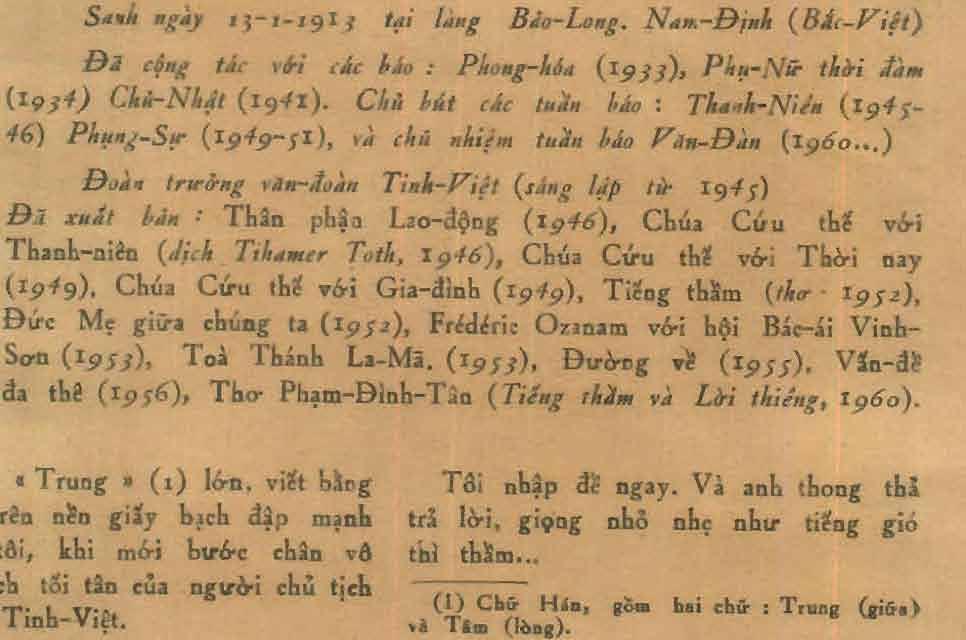 Sanh ngày 13-1-1913 tại làng Bảo-Long. Nam-Định (Bắc-Việt)
Đã cộng tác với các báo : Phong-hóa (1933), Phụ-Nữ thời đàm
(1934) Chủ-Nhật (1941). Chủ bút các tuần báo : Thanh-Niên (1945-
46) Phụng-Sự (1949-51), và chủ nhiệm tuần báo Văn-Đàn (1960...)
Đoàn trưởng văn-đoàn Tinh-Việt (sáng lập từ 1945)
Đã xuất bản : Thân phận Lao-động (1946), Chúa Cứu thế với
Thanh-niên (dịch Tihamer Toth, 1946), Chúa Cứu thế với Thời nay
(1949), Chúa Cứu thế với Gia-đình (1949), Tiếng thầm (thơ - 1952),
Đức Mẹ giữa chúng ta (1952), Frédéric Ozanam với hội Bác-ái Vinh-
Sơn (1953), Toà Thánh La-Mã. (1953), Đường về (1955), Vấn-đề
đa thê (1956), Thơ Phạm-Đình-Tân (Tiếng thầm và Lời thiêng, 1960).
« Trung » (1) lớn, viết bằng
rên nền giấy bạch đập mạnh
tôi, khi mới bước chân vô
ch tối tân của người chủ tịch
Tinh-Việt.
Tôi nhập đề ngay. Và anh thong thả
trả lời, giọng nhỏ nhẹ như tiếng gió
thì thầm...
(1) Chữ Hán, gồm hai chữ : Trung (giữa)
và Tâm (lòng).